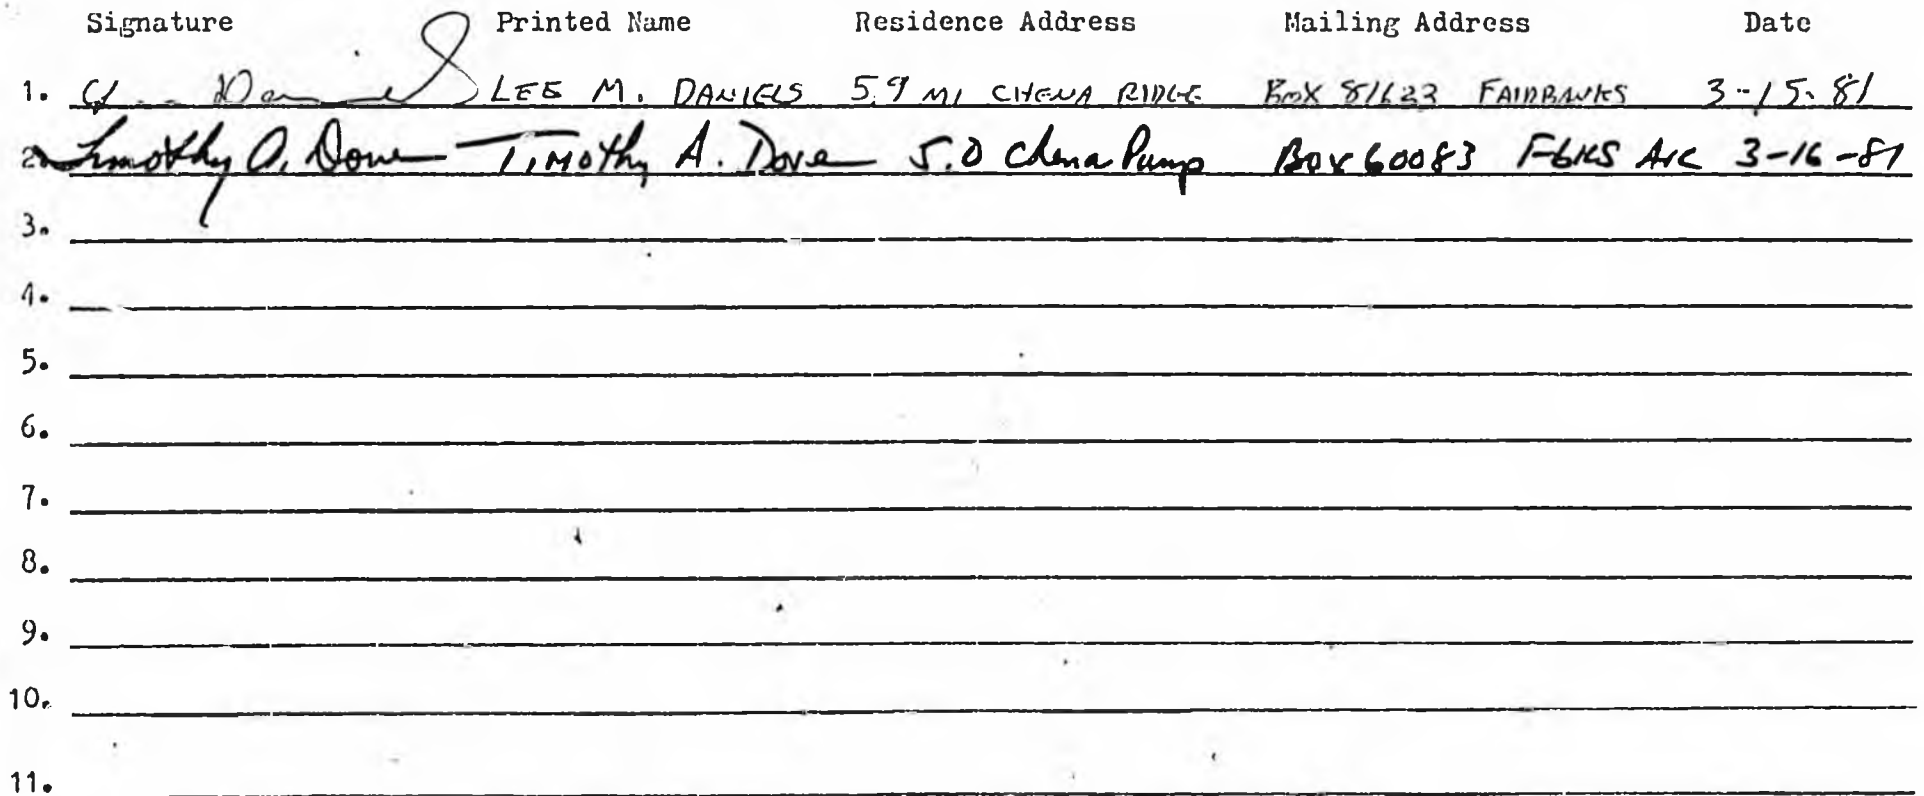 Signature Printed Name Residence Address Mailing Address Date
1. Daniels LEE M. DANIELS 5.9 MI CHENA RIDGE BOX 81623 FAIRBANKS 3-15-81
2. Timothy A. Dove Timothy A. Dove 5.0 Chena Pump Box 60083 Fbks AK 3-16-81
3.
4.
5.
6.
7.
8.
9.
10.
11.